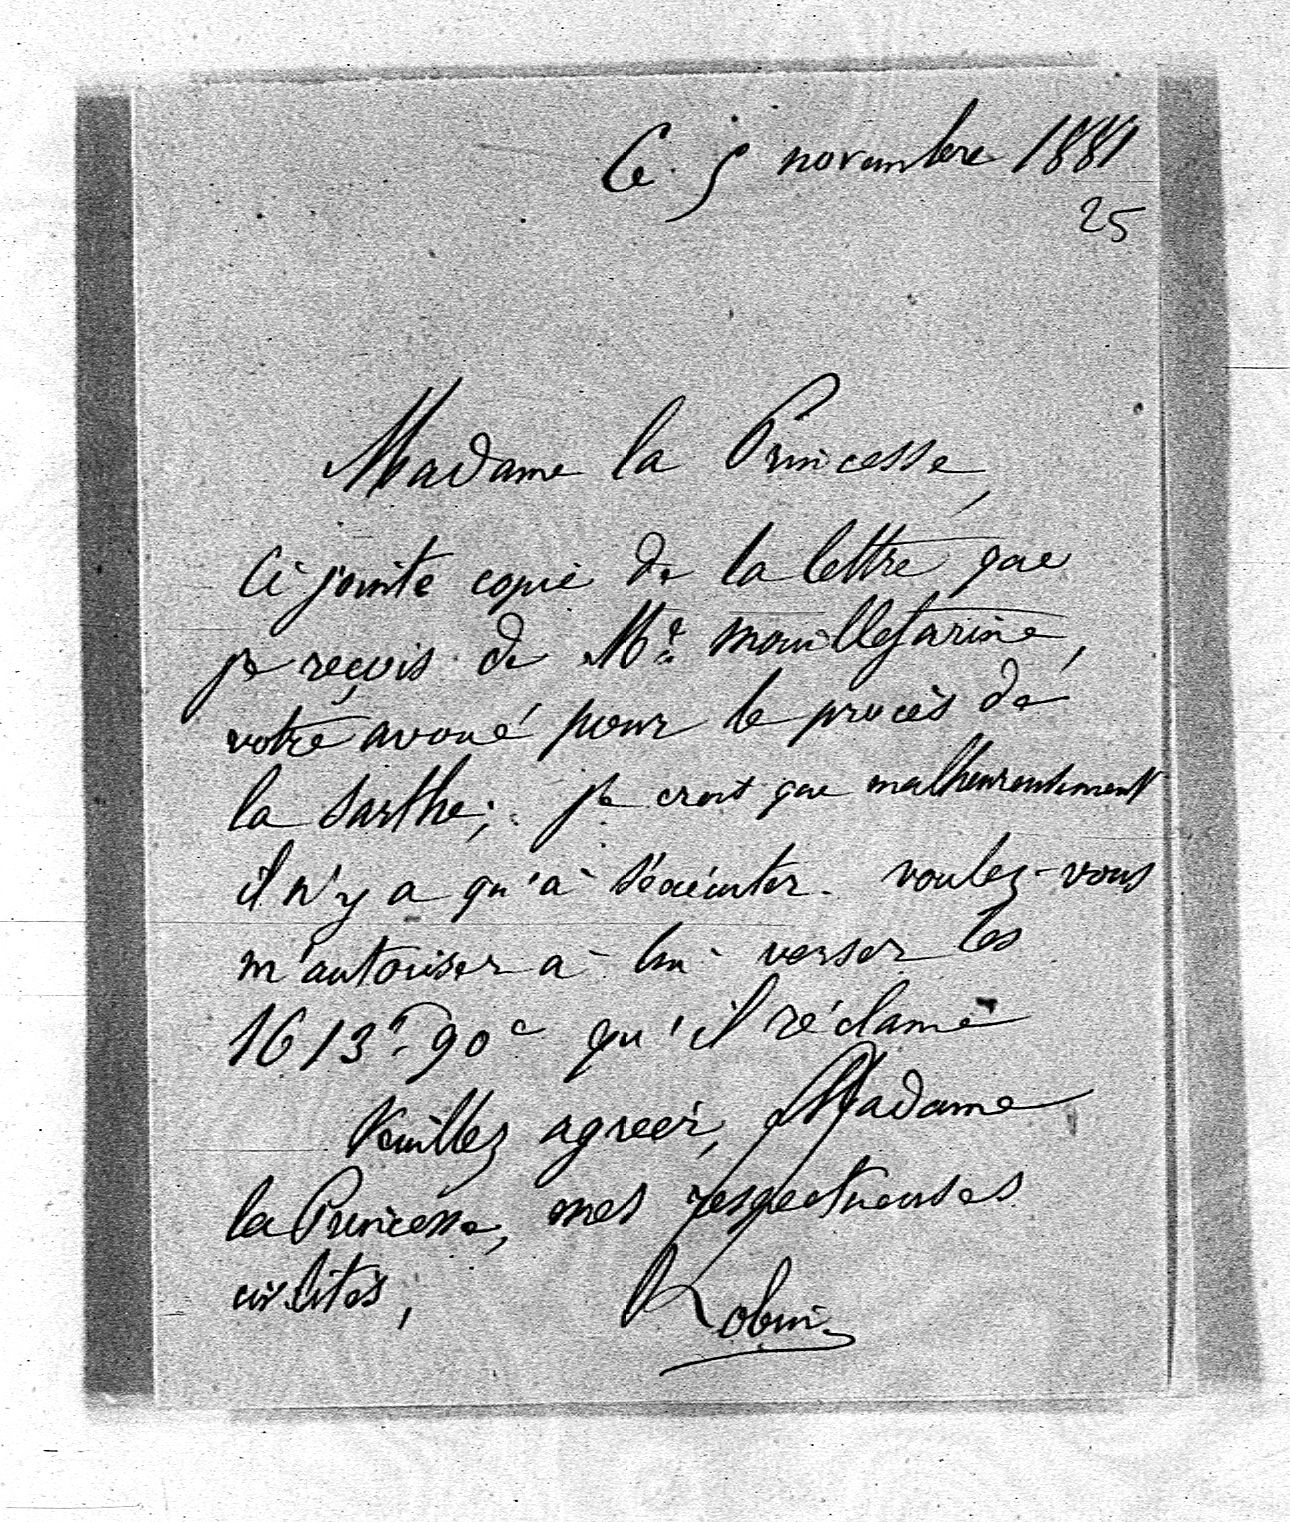 Ce 5 novembre 1881
25
Madame la Princesse,
Ci jointe copie de la lettre que
je reçois de Me Mouillefarine,
votre avoué pour le procès de
la Sarthe; je crois que malheureusement
il n'y a qu'à s'éxécuter. voulez-vous
m'autoriser à lui verser les
1613f.90c qu'il réclame
Veuillez agréer, Madame
la Princesse, mes respectueuses
civilités,
Robin